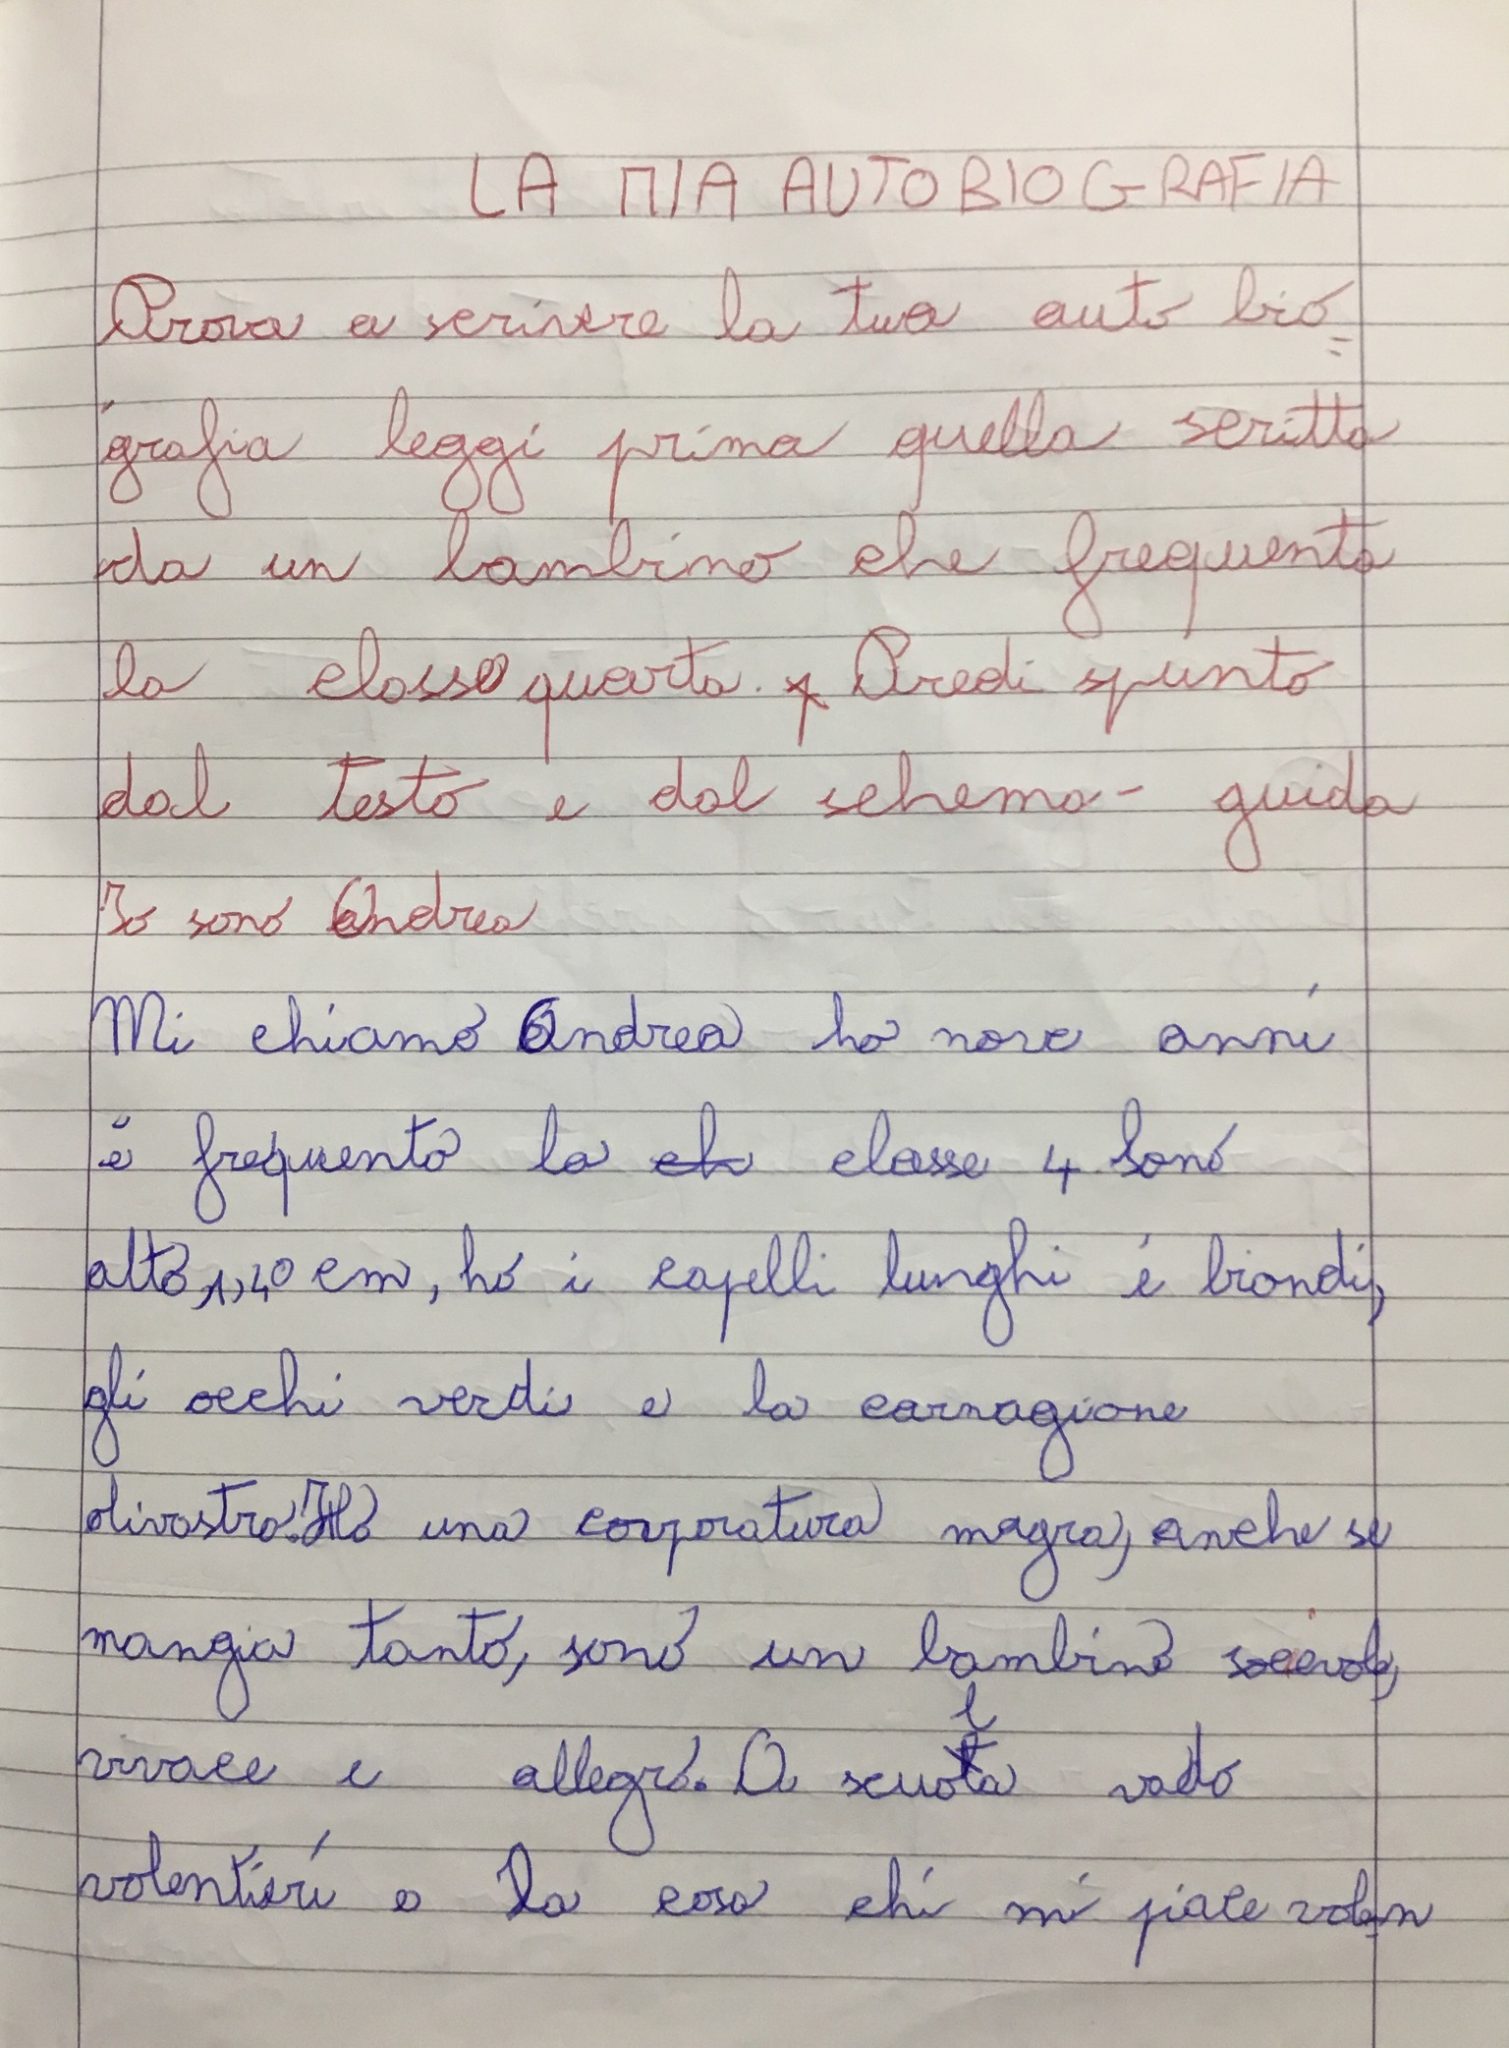 LA MIA AUTOBIOGRAFIA
Prova a scrivere la tua auto bio=
grafia leggi prima quella scritta
da un bambino che frequenta
la classe quarta. Predi spunto
dal testo e dal schema - guida
Io sono Andrea
Mi chiamo Andrea ho nove anni
è frequento la classe 4 Sono
alto,1,40 cm, ho i capelli lunghi è biondi,
gli occhi verdi e la carnagione
olivastra. Ho una corporatura magra, anche se
mangia tanto, sono un bambino socievole,
vivace e allegro. A scuola vado
volentieri e la cosa chi mi piace volen